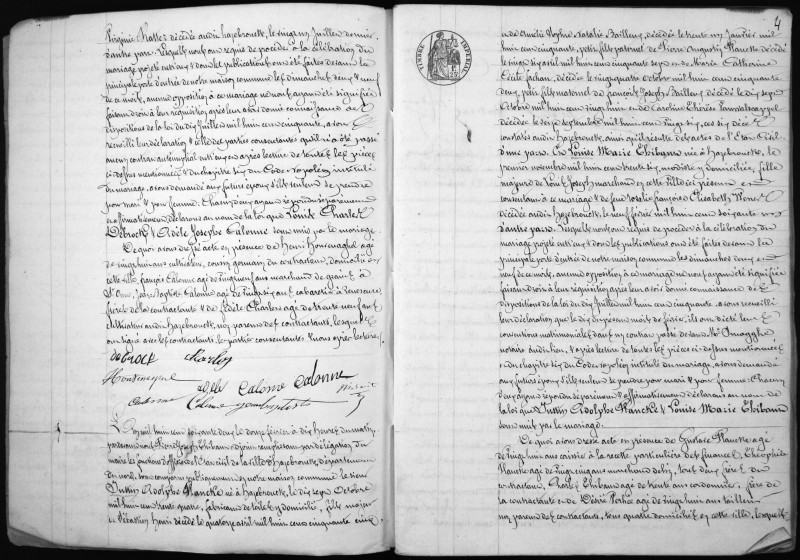 Virginie Hasse décédée audit hazebrouck, le vingt un juillet dernier
d'autre part. Lesquels nous ont requis de procéder à la célébration du
mariage projeté entr'eux & dont les publications ont été faites devant la
principale porte d'entrée de notre maison commune les dimanches deux & neuf
de ce mois, aucune opposition à ce mariage ne nous ayant été signifiée
faisant droit à leur réquisition après leur avoir donné connaissance des
dispositions de la loi du dix Juillet mil huit cent cinquante, avons
recueilli leur déclaration & celle des parties consentantes qu'il n'a été passé
aucun contrat anténuptial entr'eux, après lecture de toutes les pièces
ci-dessus mentionnées & du chapitre six du Code Napoléon intitulé
du mariage, avons demandé aux futurs époux s'ils veulent se prendre
pour mari & pour femme. Chacun d'eux ayant répondu séparément
& affirmativement, déclarons au nom de la loi que Louis Charles
Debrock & Adèle Josephe Calonne sont unis par le mariage.
De quoi avons dressé acte en présence de Henri Hontenaghel agé
de vingt huit ans cultivateur, cousin germain du contractant, domicilié en
cette ville, François Calonne agé de vingt neuf ans marchand de grains à
St Omer, Jean Baptiste Calonne agé de vingt six ans cabaretier à Renescure,
frères de la contractante & Fidèle Charley agé de trente neuf ans
cultivateur audit hazebrouck, non parent des contractants, lesquels
ont signé avec les contractants, les parties consentantes & nous après lecture.
debrock Charley
adèle Calonne Calonne
Calonne Jean baptiste
L'an mil huit cent soixante deux le douze février à dix heures du matin,
pardevant nous
maire les fonctions d'officier de l'Etat civil de la ville d'hazebrouck, département
du nord, sont comparus publiquement en notre maison commune le sieur
Justin Adolphe Plancke né à hazebrouck, le dix sept Octobre
mil huit cent trente quatre, fabricant de toiles y domicilié, fils majeur
de Sébastien Louis décédé le quatorze avril mil huit cent cinquante cinq,
4
TIMBRE IMPERIAL
& de Amélie Sophie Natalie Bailleux, décédée le trente un janvier mil
huit cent cinquante, petit fils paternel de Pierre Augustin Plancke décédé
le vingt six avril mil huit cent cinquante sept & de Marie Catherine
Cécile Fachau, décédée le vingt quatre Octobre mil huit cent cinquante
deux, petit fils maternel de François Joseph Bailleux décédé le dix sept
Octobre mil huit cent vingt huit & de Caroline Thérèse
décédée le seize septembre mil huit cent vingt six, ces dix décès
constatés audit hazebrouck, ainsi qu'il résulte des actes de l'Etat Civil
d'une part. Et Louise Marie Thibaut née à hazebrouck, le
premier novembre mil huit cent trente six, modiste y domiciliée, fille
majeure de Louis Joseph marchand en cette ville ci présent &
consentant à ce mariage & de feue Rosalie françoise Elisabeth
décédée audit hazebrouck, le neuf février mil huit cent soixante un
d'autre part. Lesquels nous ont requis de procéder à la célébration du
mariage projeté entr'eux & dont les publications ont été faites devant la
principale porte d'entrée de notre maison commune les dimanches deux &
neuf de ce mois, aucune opposition à ce mariage ne nous ayant été signifiée
faisant droit à leur réquisition après leur avoir donné connaissance des
dispositions de la loi du dix Juillet mil huit cent cinquante, avons recueilli
leur déclaration que le dix du présent mois de février, ils ont arrêté leurs
conventions matrimoniales dans un contrat passé devant Me
notaire audit lieu, & après lecture de toutes les pièces ci-dessus mentionnées
& du chapitre six du Code Napoléon intitulé du mariage, avons demandé
aux futurs époux s'ils veulent se prendre pour mari & pour femme. Chacun
d'eux ayant répondu séparément & affirmativement, déclarons au nom de
la loi que Justin Adolphe Plancke & Louise Marie Thibaut
sont unis par le mariage.
De quoi avons dressé acte en présence de Gustave Plancke agé
de vingt huit ans caissier à la recette particulière des finances, Théophile
Plancke agé de vingt cinq ans marchand de vin, tous deux frères du
contractant, Charles Thibaut agé de trente ans cordonnier, frère de
la contractante & Désiré agé de vingt huit ans tailleur
non parent des contractants, tous quatre domiciliés en cette ville, lesquels